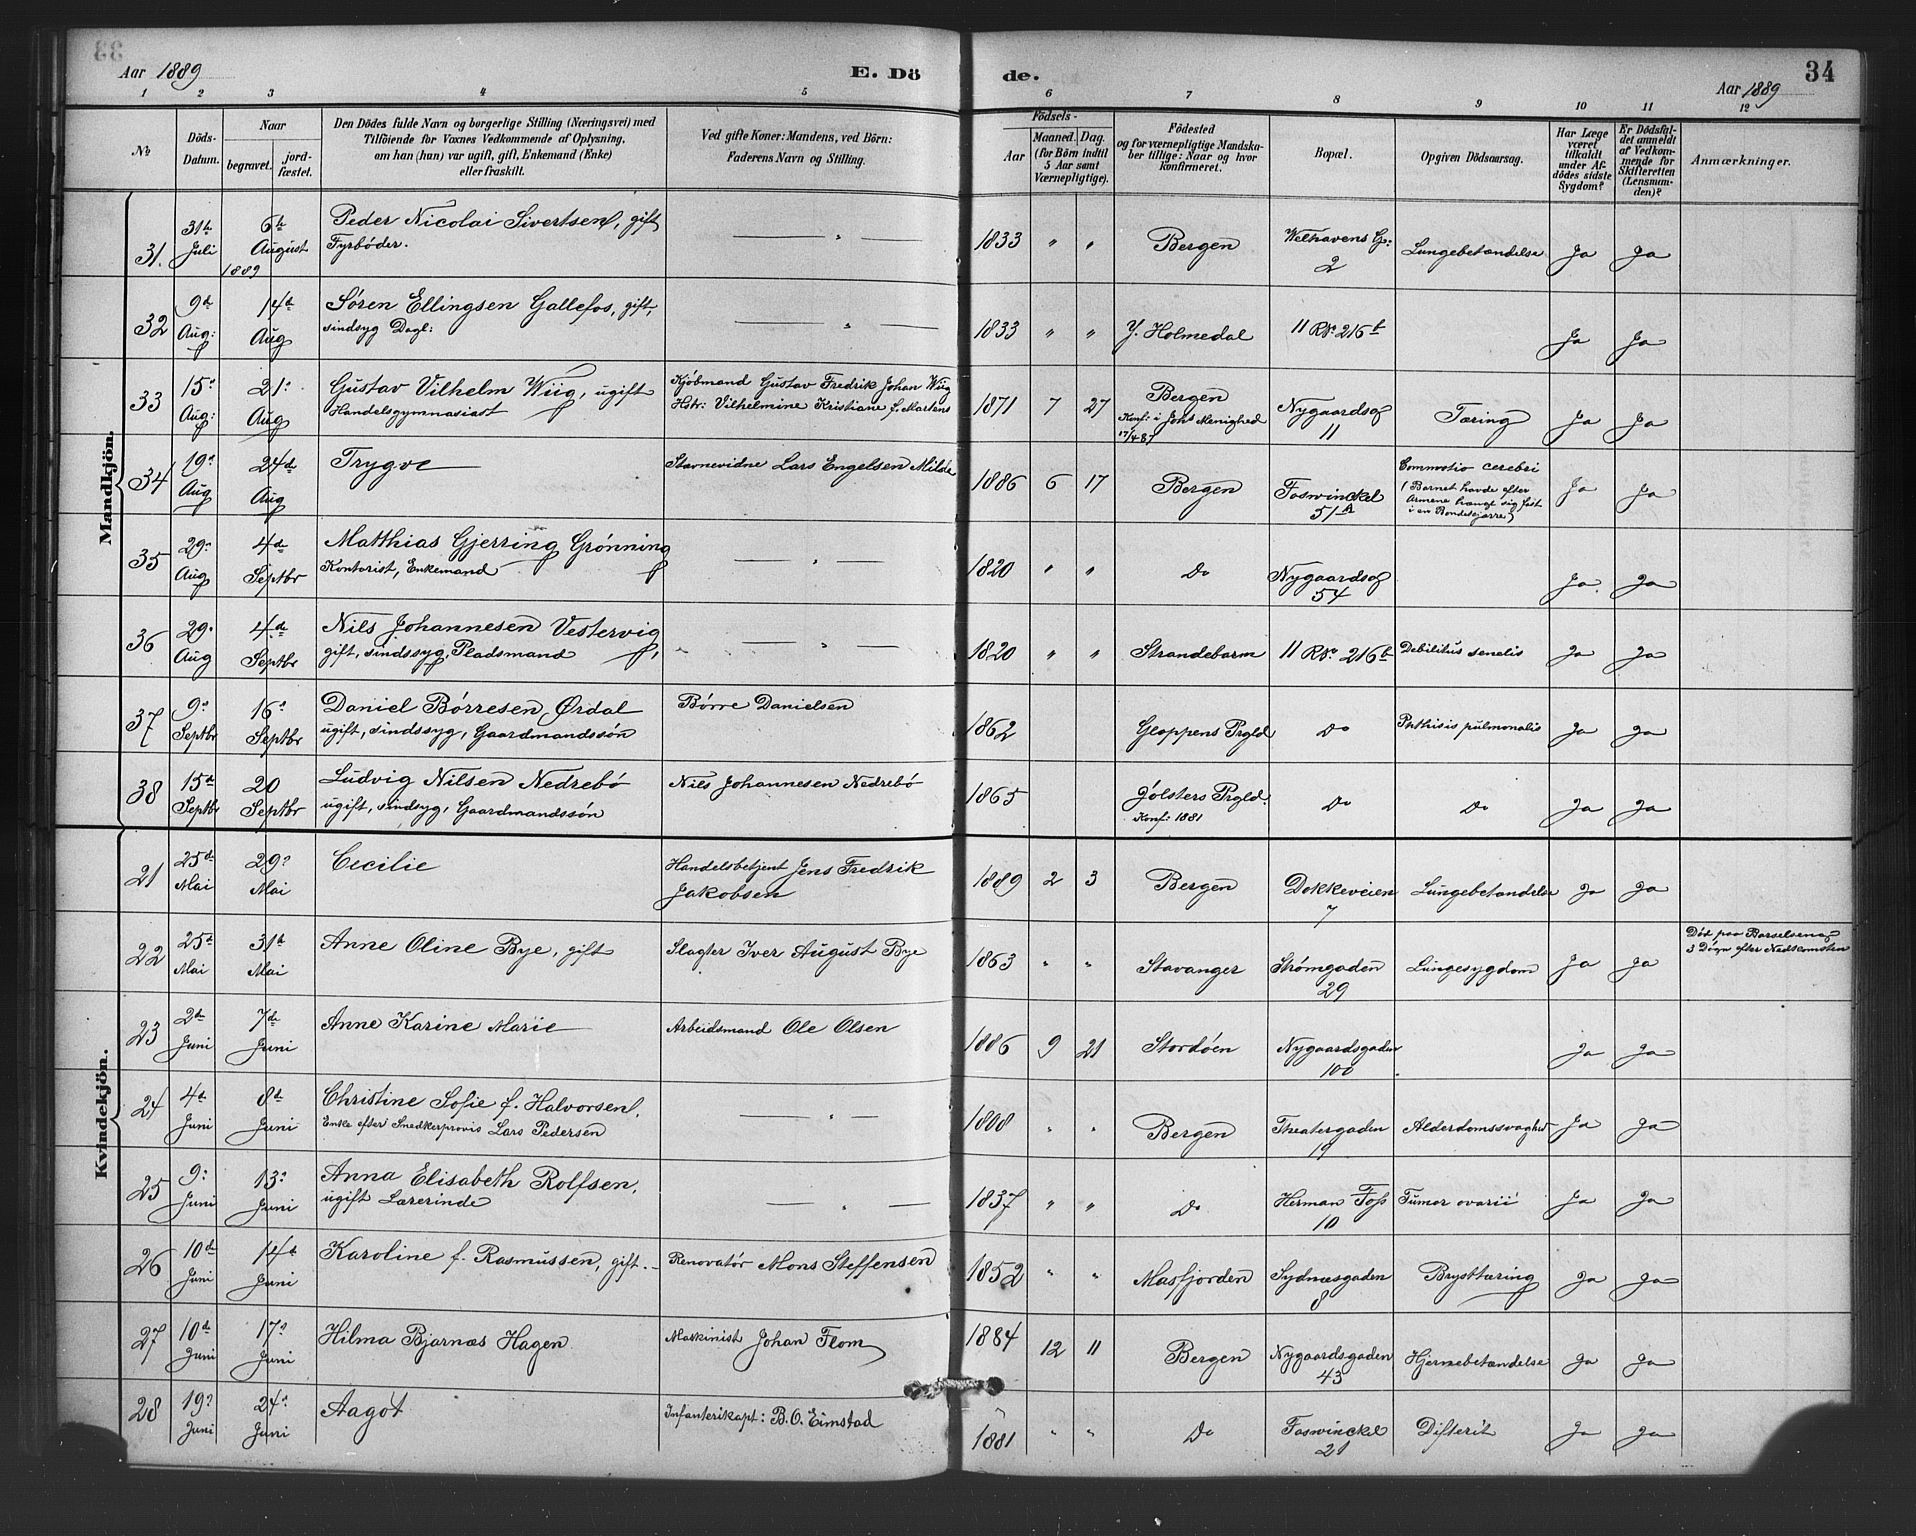 Aar 1889
E. Dö
de.
34
Aar 1889
1 2 3 4 5 6 7 8 9 10 11 12
№
Döds-Datum.
Naar
begravet.
jordfæstet.
Den Dödes fulde Navn og borgerlige Stilling (Næringsvei) med
Tilföiende for Voxnes Vedkommende af Oplysning,
om han (hun) var ugift, gift, Enkemand (Enke)
eller fraskilt.
Ved gifte Koner: Mandens, ved Börn:
Faderens Navn og Stilling.
Födsels-
Aar
Maaned. Dag.
(for Börn indtil
5 Aar samt
Værnepligtige).
Födested
og for værnepligtige Mandska-
ber tillige: Naar og hvor
konfirmeret.
Bopæl.
Opgiven Dödsaarsag.
Har Læge
været
tilkaldt
under Af-
dödes sidste
Sygdom?
Er Dödsfal-
det anmeldt
af Vedkom-
mende for
Skifteretten
(Lensman-
den)?
Anmærkninger.
Mandkjön.
31. 31te Juli 6te August 1889 Peder Nicolai Sivertsen, gift Fyrbøder. — " — 1833 " " Bergen Welhavens G: 2 Lungebetændelse Ja Ja
32 9d Aug: 14d Aug Søren Ellingsen Gallefos, gift, sindsyg Dagl: — " — 1833 " " Y. Holmedal 11 R№ 216b Ja Ja
33 15: Aug: 21: Aug Gustav Vilhelm Wiig, ugift Handelsgymnasiast Kjøbmand Gustav Fredrik Johan Wiig Hstr: Vilhelmine Kristiane f. Martens 1871 7 27 Bergen Konf: i Johs Menighed 17/4 87 Nygaardsg 11 Tæring Ja Ja
34 19: Aug 24d Aug Trygve Stavnevidne Lars Engelsen Milde 1886 6 17 Bergen Foswinckel 51A Commotio cerebri (Barnet havde efter Armene hængt sig fast i en Bondekjærre) Ja Ja
35 29: Aug 4de Septbr Matthias Gjerring Grønning Kontorist, Enkemand — " — 1820 " " Do Nygaardsg 54 Ja. Ja
36 29: Aug 4de Septbr Nils Johannesen Vestervig, gift, sindssyg Pladsmand — " — 1820 " " Strandebarm 11 R№ 216b Debilitus senelis Ja Ja
37 9: Septbr 16: Septbr Daniel Børresen Ørdal ugift, sindssyg, Gaardmandssøn Børre Danielsen 1862 Gloppens Prgld Do Phthisis pulmonalis Ja Ja
38 15d Septbr 20 Septbr Ludvig Nilsen Nedrebø ugift, sindsyg, Gaardmandssøn Nils Johannesen Nedrebø 1865 Jølsters Prgld. Konf: 1881 Do Do Ja Ja
Kvindekjön.
21 25d Mai 29: Mai Cecilie Handelsbetjent Jens Fredrik Jakobsen 1889 2 3 Bergen Dokkeveien 7 Lungebetændelse Ja Ja
22 25d Mai 31d Mai Anne Oline Bye, gift Slagter Iver August Bye 1863 " " Stavanger Strømgaden 29 Lungesygdom Ja Ja Død paa Barselseng 3 Døgn efter Nedkomsten
23 2de Juni 7de Juni Anne Karine Marie Arbeidsmand Ole Olsen 1886 9 21 Stordøen Nygaardsgaden 100 Ja Ja
24 4d Juni 8d Juni Christine Sofie f. Halvorsen, Enke efter Snedkerprovis Lars Pedersen — " — 1808 " " Bergen Theatergaden 19 Alderdomssvaghed Ja Ja
25 9: Juni 13: Juni Anna Elisabeth Rolfsen, ugift Lærerinde — " — 1837 " " Do Herman Foss 10 Tumor ovarii Ja Ja
26 10d Juni 14d Juni Karoline f. Rasmussen, gift. Renovatør Mons Steffensen 1852 " " Masfjorden Sydnæsgaden 8 Brysttæring Ja Ja
27 10d Juni 17: Juni Hilma Bjarnæs Hagen Maskinist Johan Flom 1884 12 11 Bergen Nygaardsgaden 43 Hjernebetændelse Ja Ja
28 19: Juni 24: Juni Aagot Infanterikapt: B. O. Eimstad 1881 " " Do Foswinckel 21 Difterit Ja Ja